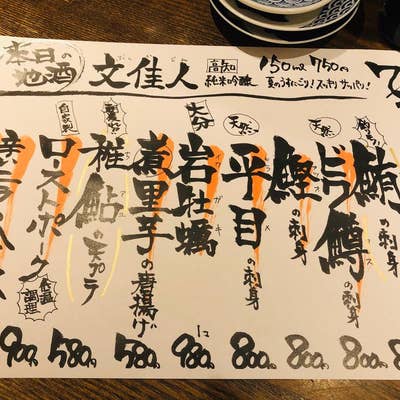 本日の地酒
文佳人
高知
純米吟醸
150ml 750円
夏のうすにごり!スッキリサッパリ!
鮪の刺身
800円
天然
鱒の刺身
800円
鰹の刺身
800円
天然
平目の刺身
800円
大分
岩牡蠣
イワガキ
1コ
980円
煮里芋の唐揚げ
580円
稚鮎の天プラ
580円
自家製
ローストポーク
低温調理
900円